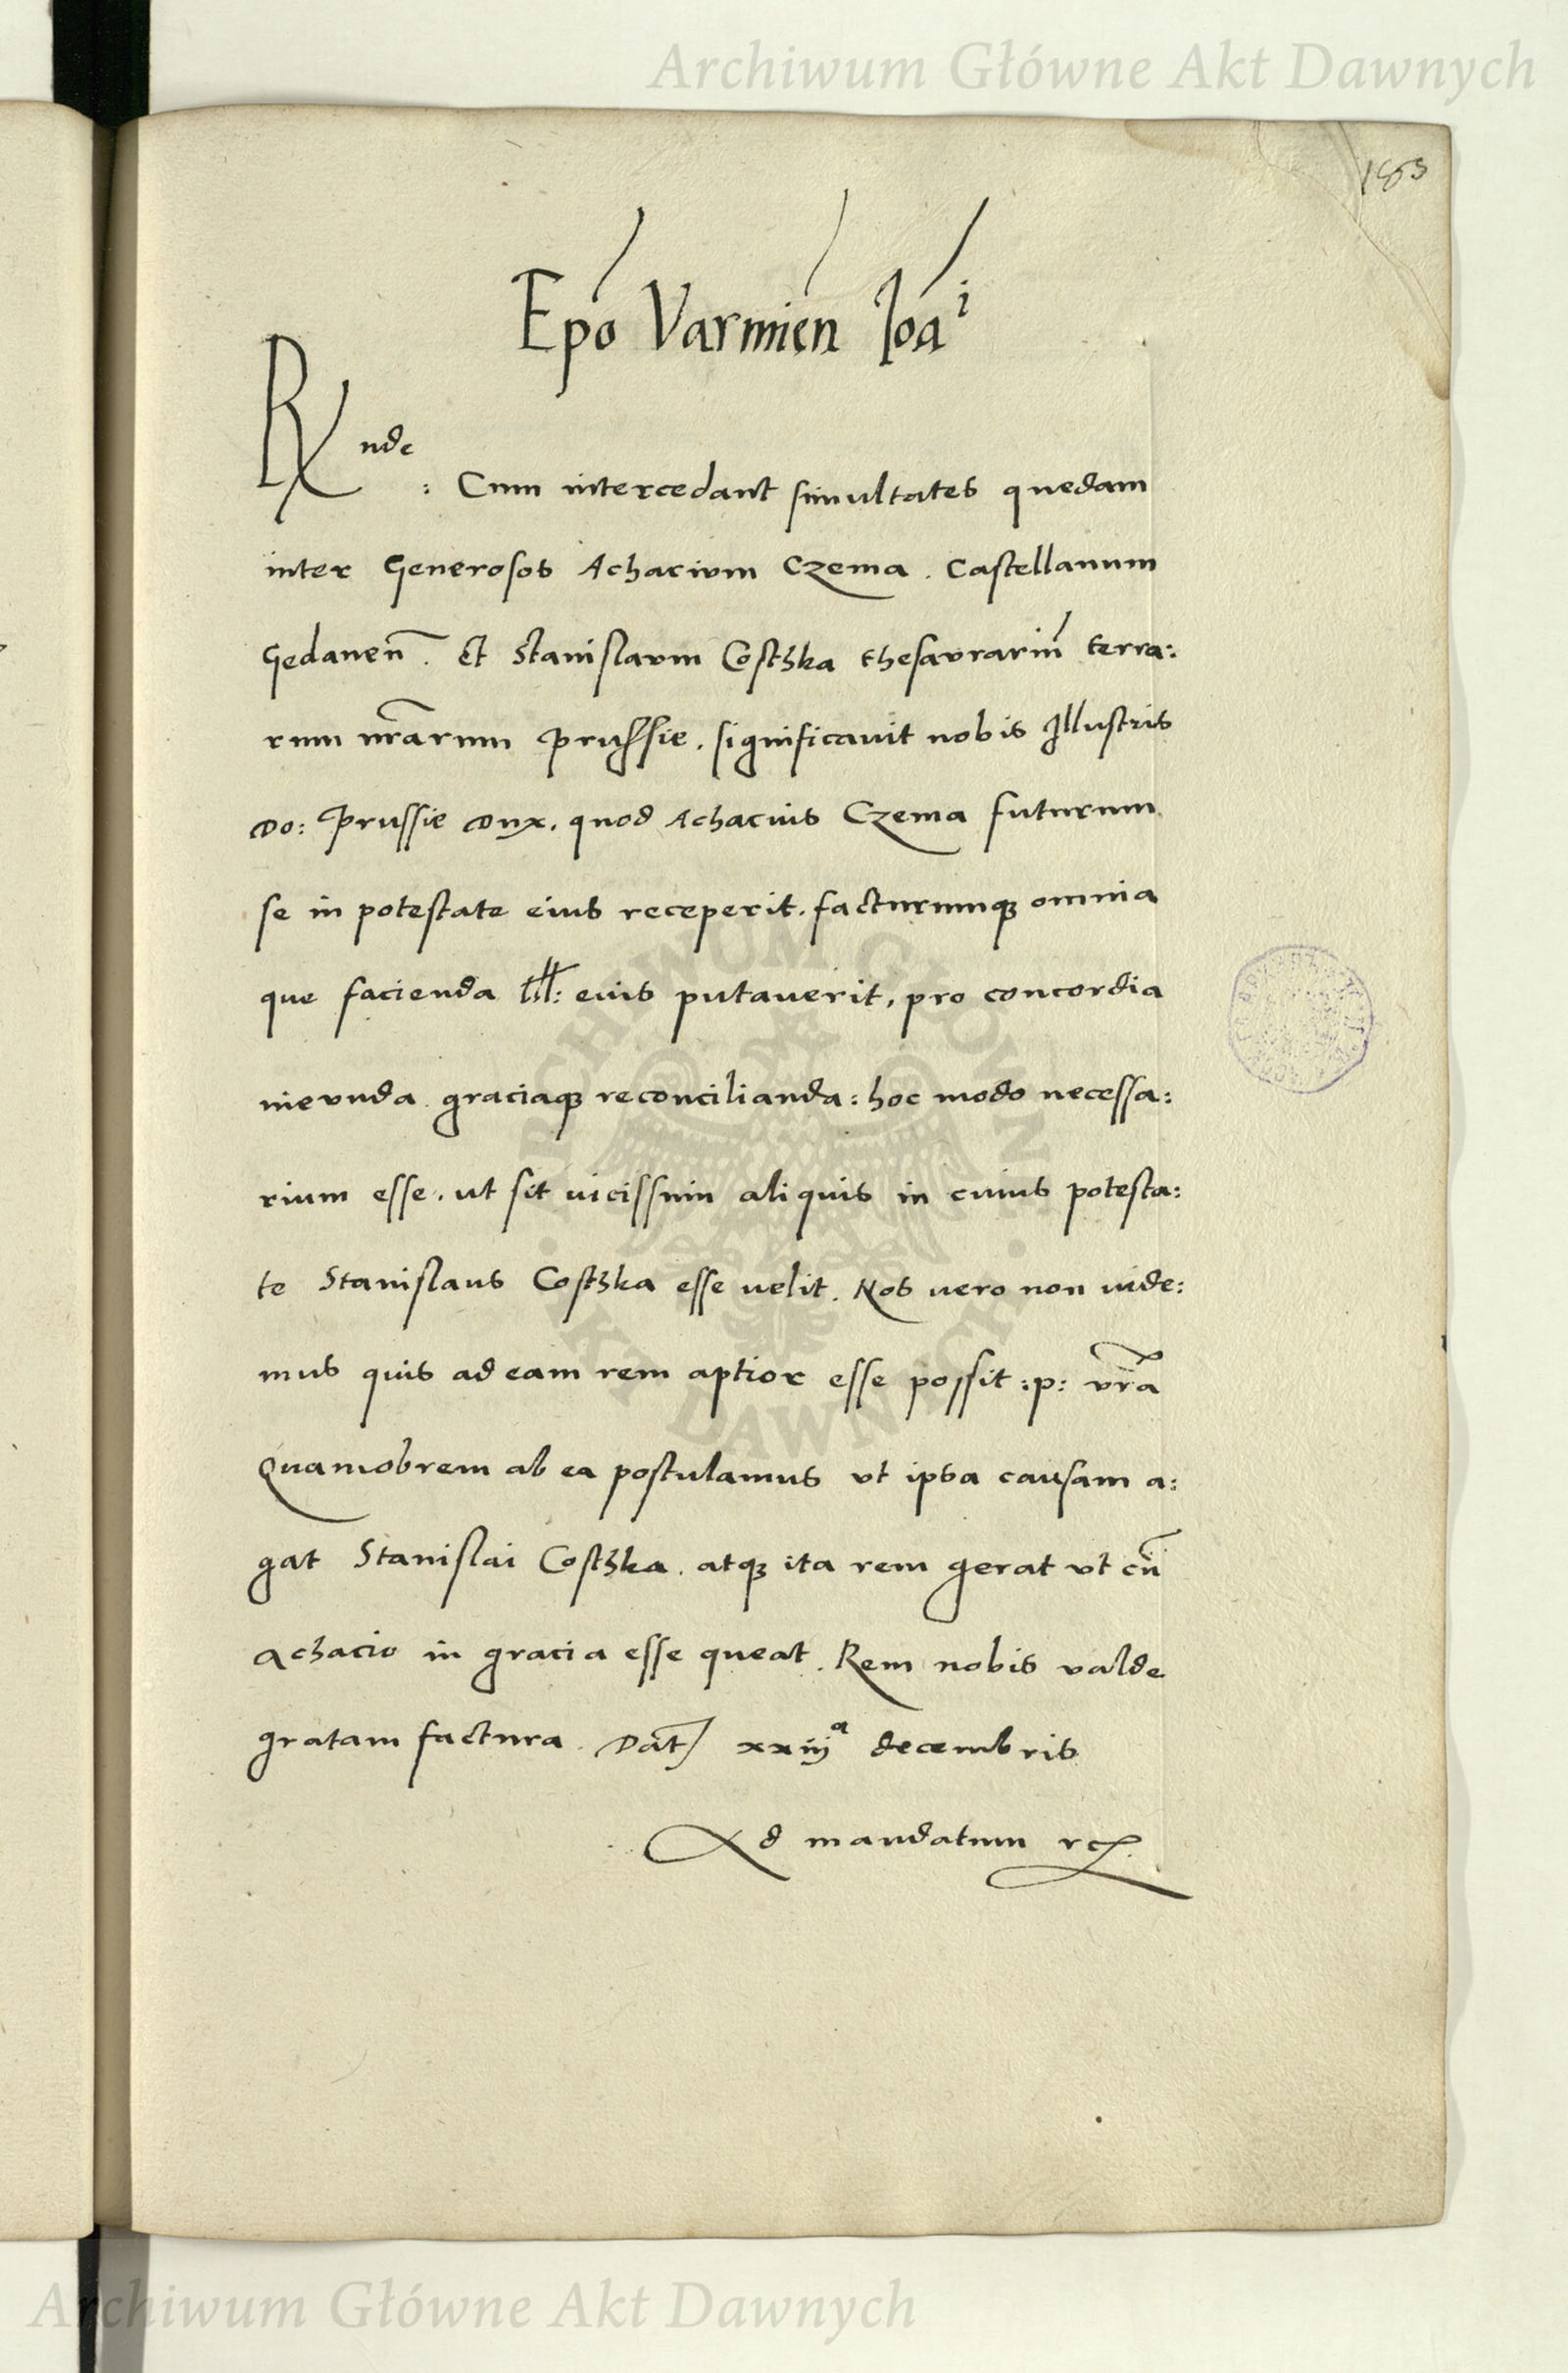 Archiwum Główne Akt Dawnych
183
Epo Varmien Joai
Rnde
: Cum intercedant simultates quedam
inter Generosos Achacium Czema . Castellanum
Gedanen . Et Stanislaum Costhka thesaurariu terra:
rum nrarum Prussie . significavit nobis Illustris
Do: Prussie Dux . quod Achacius Czema futurum
se in potestate eius receperit . facturumq omnia
que facienda Ill: eius putaverit , pro concordia
ineunda graciaq reconcilianda : hoc modo necessa:
rium esse . ut sit vicissim aliquis in cuius potesta:
te Stanislaus Costhka esse velit . Nos vero non vide:
mus quis ad eam rem aptior esse possit :p: vra
Quamobrem ab ea postulamus vt ipsa causam a:
gat Stanislai Costhka . atq ita rem gerat vt cu
Achacio in gracia esse queat . Rem nobis valde
gratam factura . Dat xxiija decembris
Ad mandatum rc
Archiwum Główne Akt Dawnych